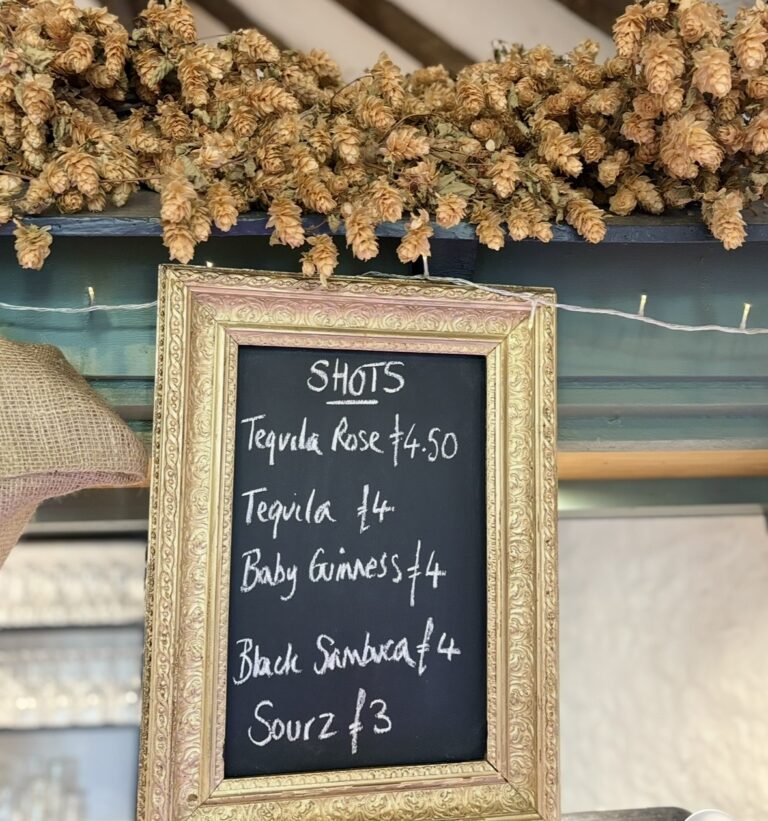 SHOTS
Tequila Rose £4.50
Tequila £4
Baby Guinness £4
Black Sambuca £4
Sourz £3